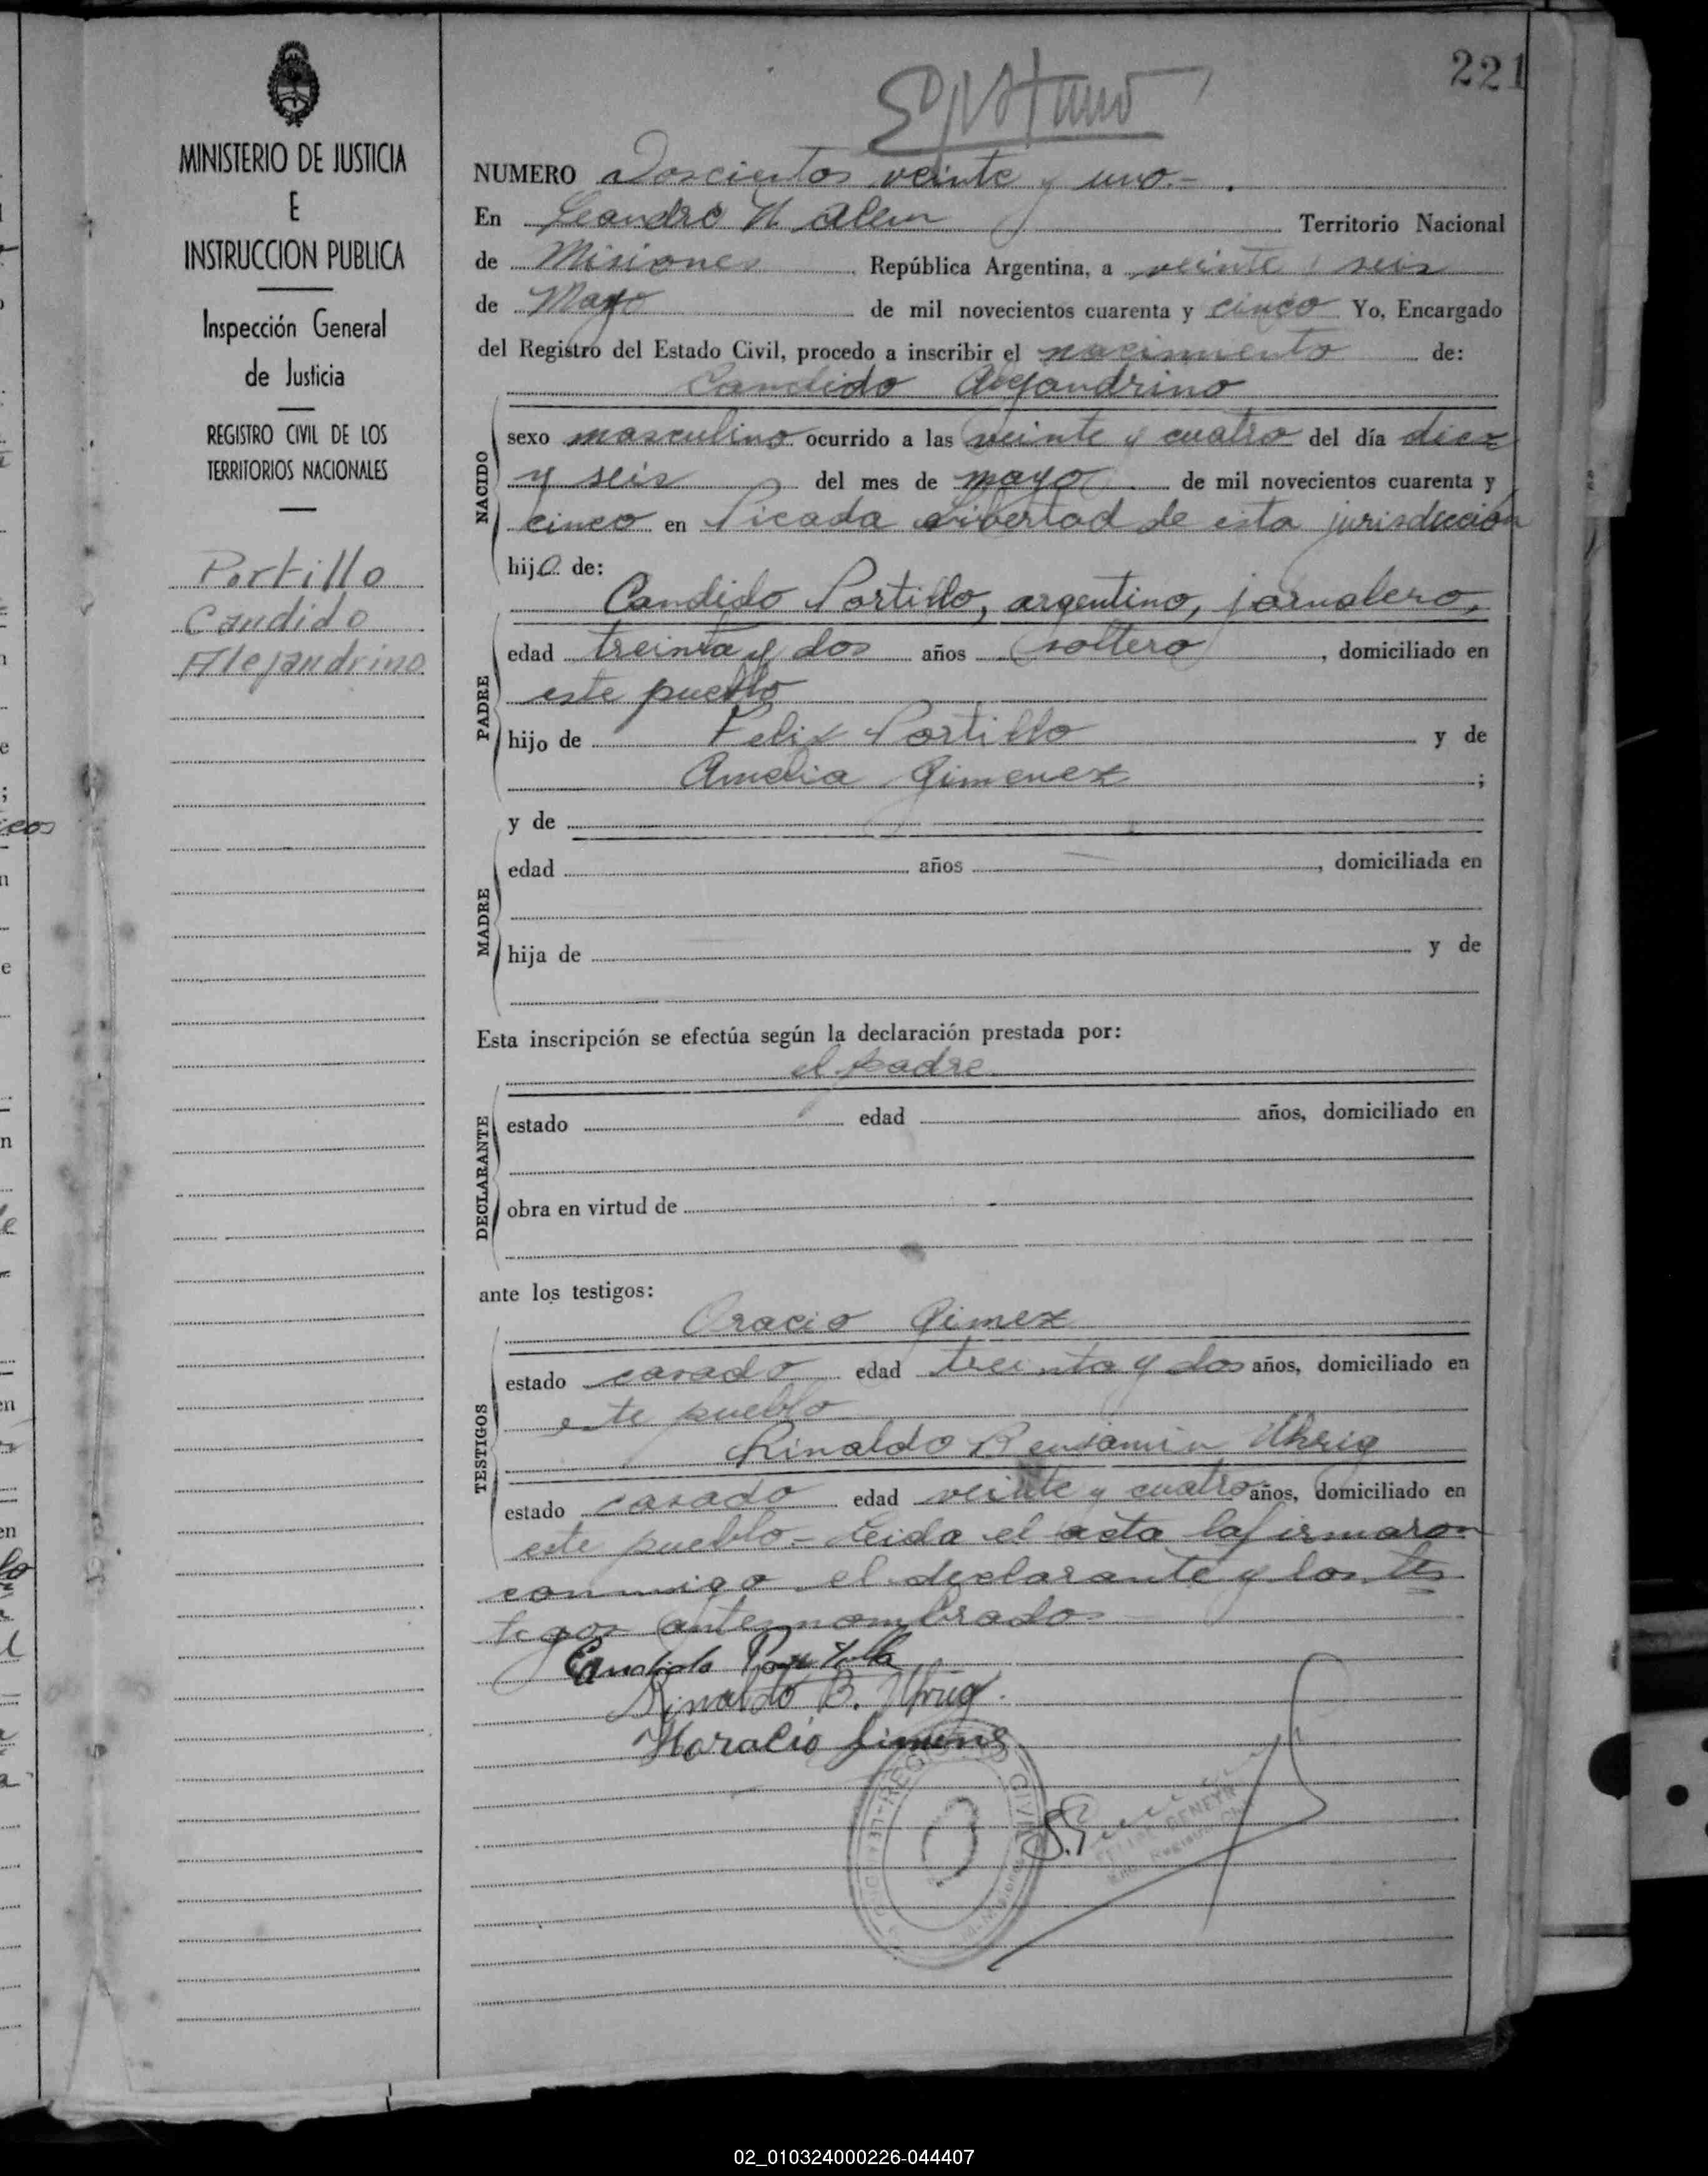 221
MINISTERIO DE JUSTICIA
E
INSTRUCCION PUBLICA
Inspección General
de Justicia
REGISTRO CIVIL DE LOS
TERRITORIOS NACIONALES
Portillo
Candido
Alejandrino
NUMERO Doscientos veinte y uno.-
En Leandro N. Alem Territorio Nacional
de Misiones República Argentina, a veinte seis
de Mayo de mil novecientos cuarenta y cinco Yo, Encargado
del Registro del Estado Civil, procedo a inscribir el nacimiento de:
Candido Alejandrino
NACIDO
sexo masculino ocurrido a las veinte y cuatro del día diez
y seis del mes de mayo de mil novecientos cuarenta y
cinco en Picada Libertad de esta jurisdicción
hijo de:
Candido Portillo, argentino, jornalero,
PADRE
edad treinta y dos años soltero, domiciliado en
este pueblo
hijo de Felix Portillo y de
Amelia Gimenez;
y de
MADRE
edad años , domiciliada en
hija de y de
Esta inscripción se efectúa según la declaración prestada por:
el padre
DECLARANTE
estado edad años, domiciliado en
obra en virtud de
ante los testigos:
Oracio Gimez
TESTIGOS
estado casado edad treinta y dos años, domiciliado en
este pueblo
Rinaldo Benjamin Uhrig
estado casado edad veinte y cuatro años, domiciliado en
este pueblo.- Leida el acta la firmaron
conmigo el declarante y los tes
tigos antenombrados
Candido Portillo
Rinaldo B. Uhrig.
Horacio Gimens
02_010324000226-044407